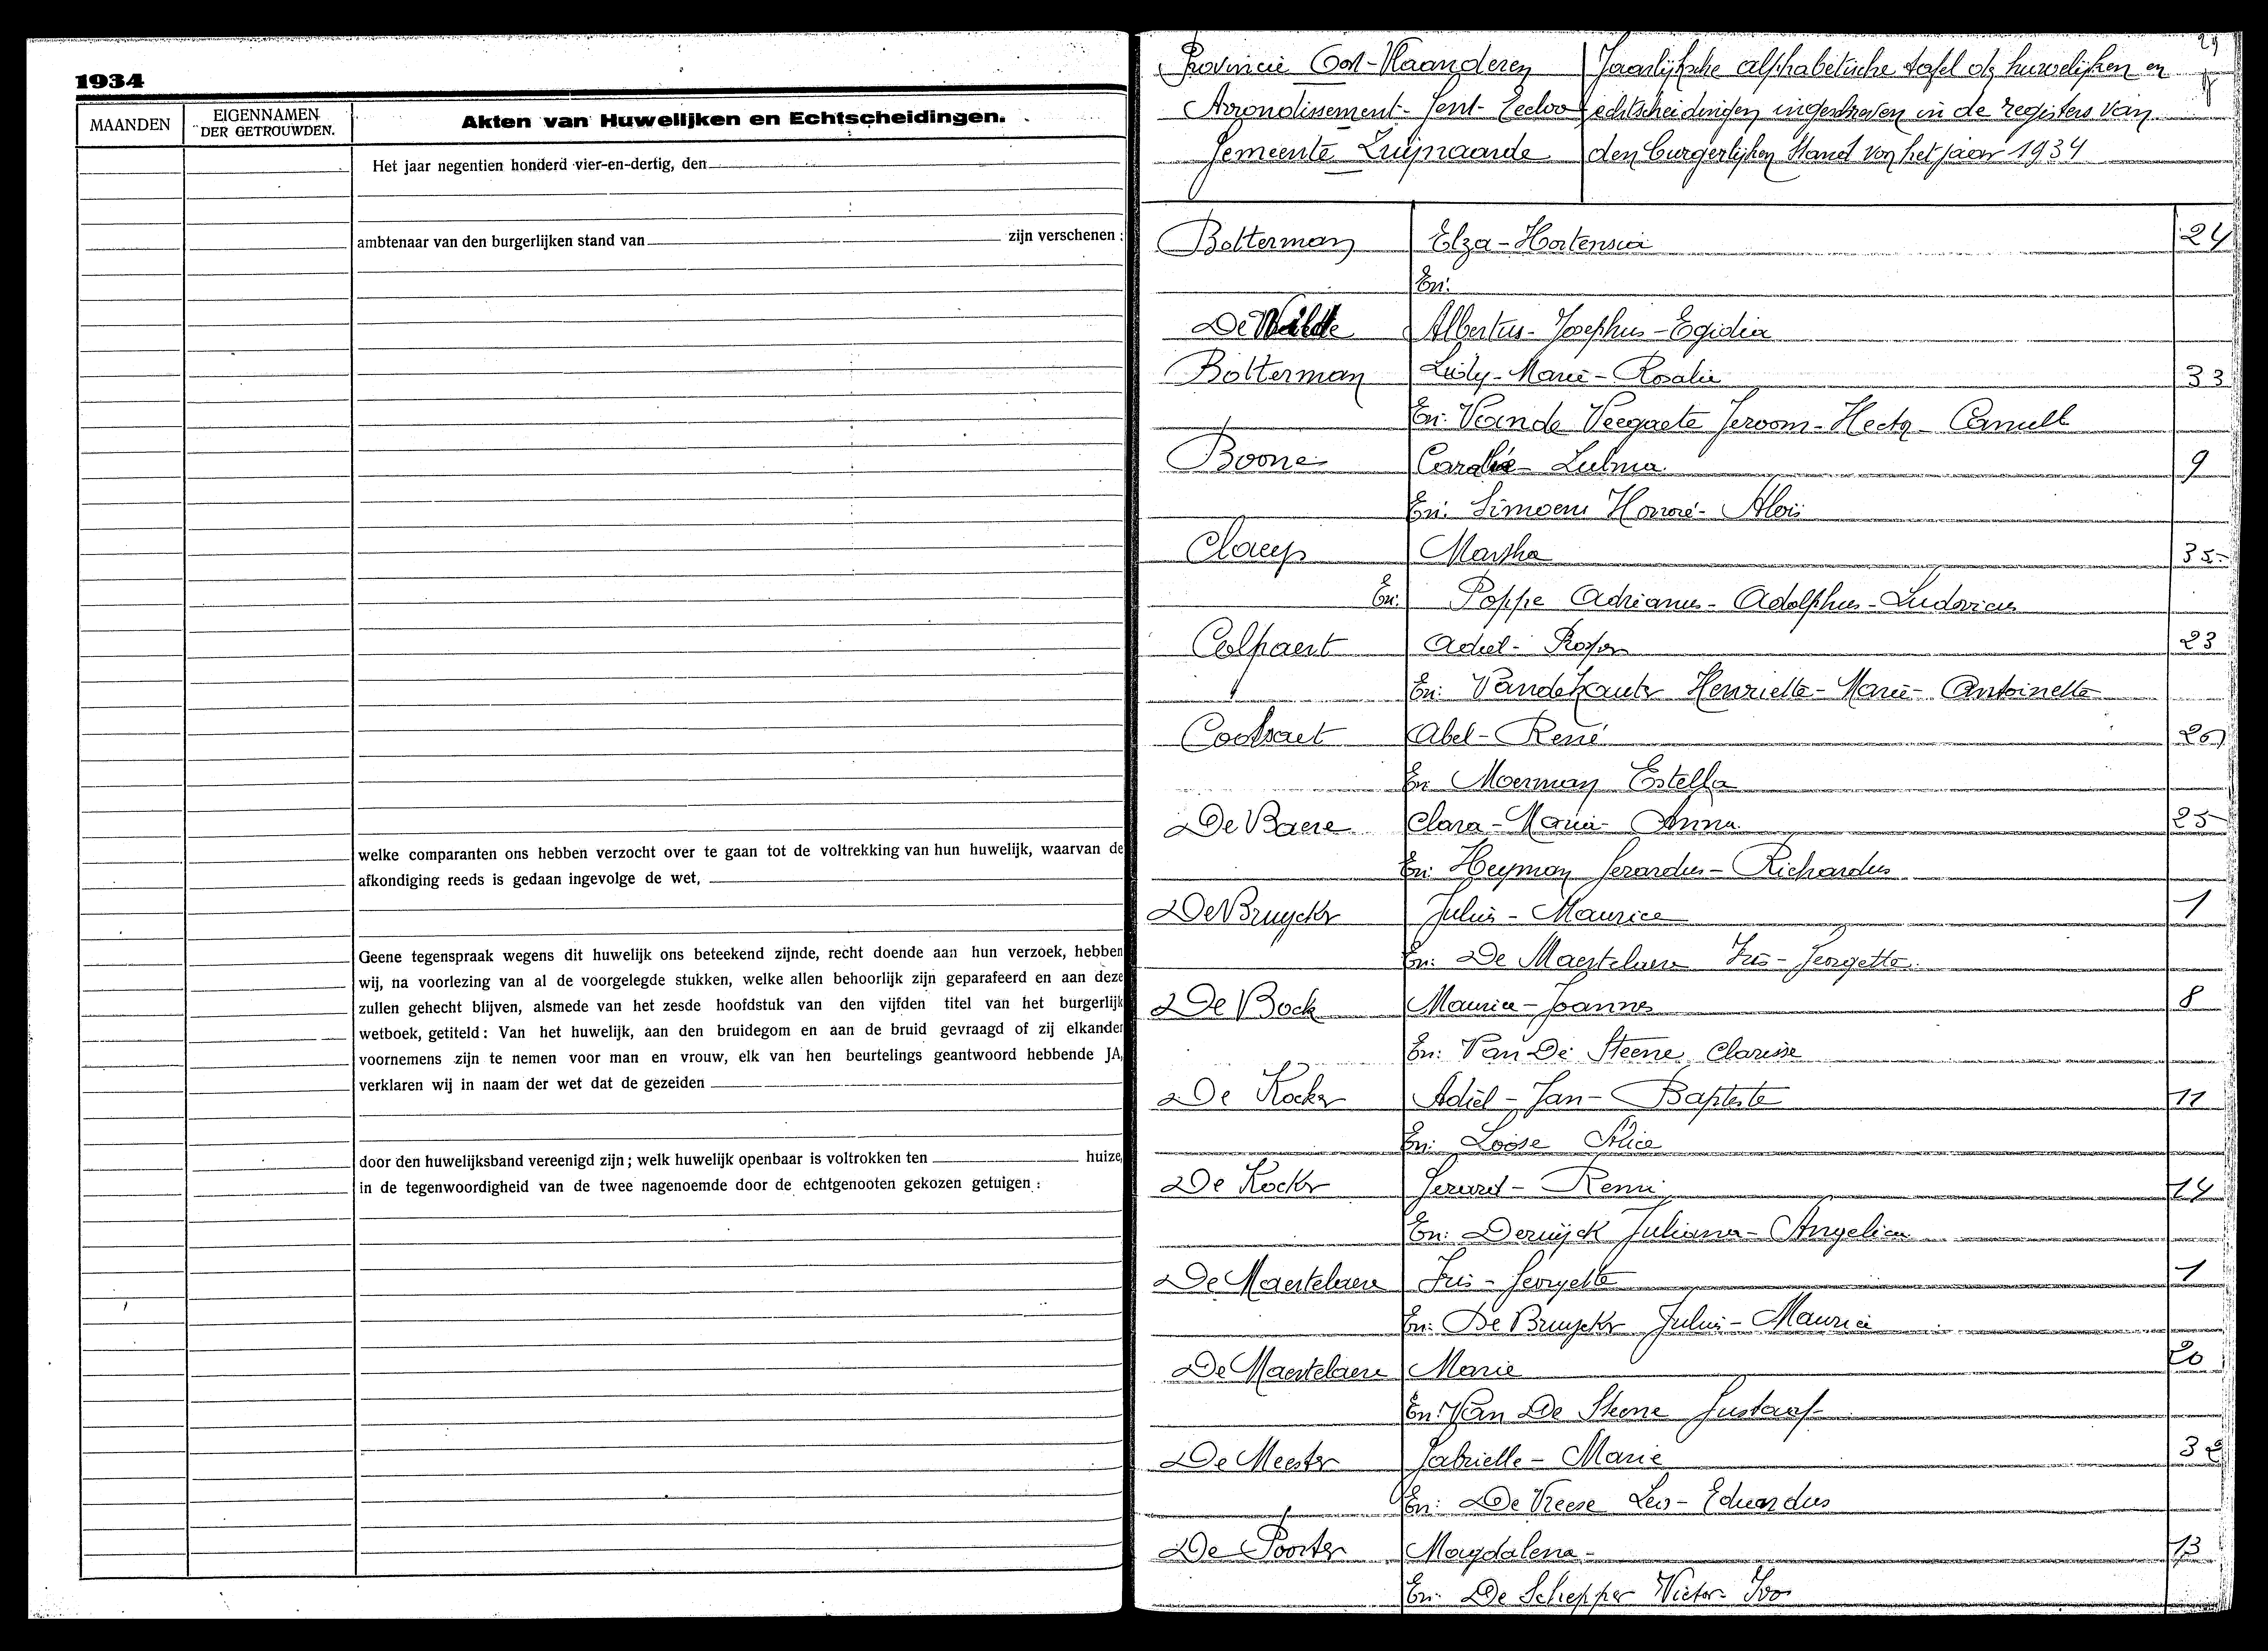 1934
MAANDEN
EIGENNAMEN
DER GETROUWDEN.
Akten van Huwelijken en Echtscheidingen.
Het jaar negentien honderd vier-en-dertig, den
ambtenaar van den burgerlijken stand van zijn verschenen :
welke comparanten ons hebben verzocht over te gaan tot de voltrekking van hun huwelijk, waarvan de
afkondiging reeds is gedaan ingevolge de wet,
Geene tegenspraak wegens dit huwelijk ons beteekend zijnde, recht doende aan hun verzoek, hebben
wij, na voorlezing van al de voorgelegde stukken, welke allen behoorlijk zijn geparafeerd en aan deze
zullen gehecht blijven, alsmede van het zesde hoofdstuk van den vijfden titel van het burgerlijk
wetboek, getiteld : Van het huwelijk, aan den bruidegom en aan de bruid gevraagd of zij elkander
voornemens zijn te nemen voor man en vrouw, elk van hen beurtelings geantwoord hebbende JA,
verklaren wij in naam der wet dat de gezeiden
door den huwelijksband vereenigd zijn ; welk huwelijk openbaar is voltrokken ten huize,
in de tegenwoordigheid van de twee nagenoemde door de echtgenooten gekozen getuigen :
Provincie Oost-Vlaanderen
Arrondissement- Gent- Eecloo
Gemeente Zwijnaarde
Jaarlijksche alphabetische tafel der huwelijken en
echtscheidingen ingeschreven in de registers van
den burgerlijken Stand van het jaar 1934
Bolterman Elza-Hortensia 24
En:
De Wilde Albertus- Josephus- Egidia
Bolterman Marie- Rosalie 33
En: Van de Veegaete Jeroom- Hector- Camill
Boone Zulma 9
En: Simoens Honoré- Aloïs
Claeys Martha 35
En: Poppe Adrianus- Adolphus- Ludovicus
Colpaert Achiel- Prosper 23
En: Vandekauter Henriette- Marie- Antoinette
Cootsaet Abel- René
En: Moerman Estella
De Baere Clara- Maria- Anna 25
En: Heyman Gerardus- Richardus
De Bruycker Julius- Maurice 1
En: De Maertelaere Iris- Georgette
De Bock Maurice- Joannes 8
En: Van De Steene Clarisse
De Kocker Adiel- Jan- Baptiste 11
En: Loose Alice
De Kocker Gerard- Remi 14
En: Deruyck Juliana- Angelica
De Maertelaere Iris- Georgette 1
En: De Bruycker Julius- Maurice
De Maertelaere Marie 20
En: Van De Steene Gustaaf
De Meester Gabrielle- Marie 32
En: De Vreese Leo- Eduardus
De Poorter Magdalena- 13
En: De Schepper Victor- Ivo